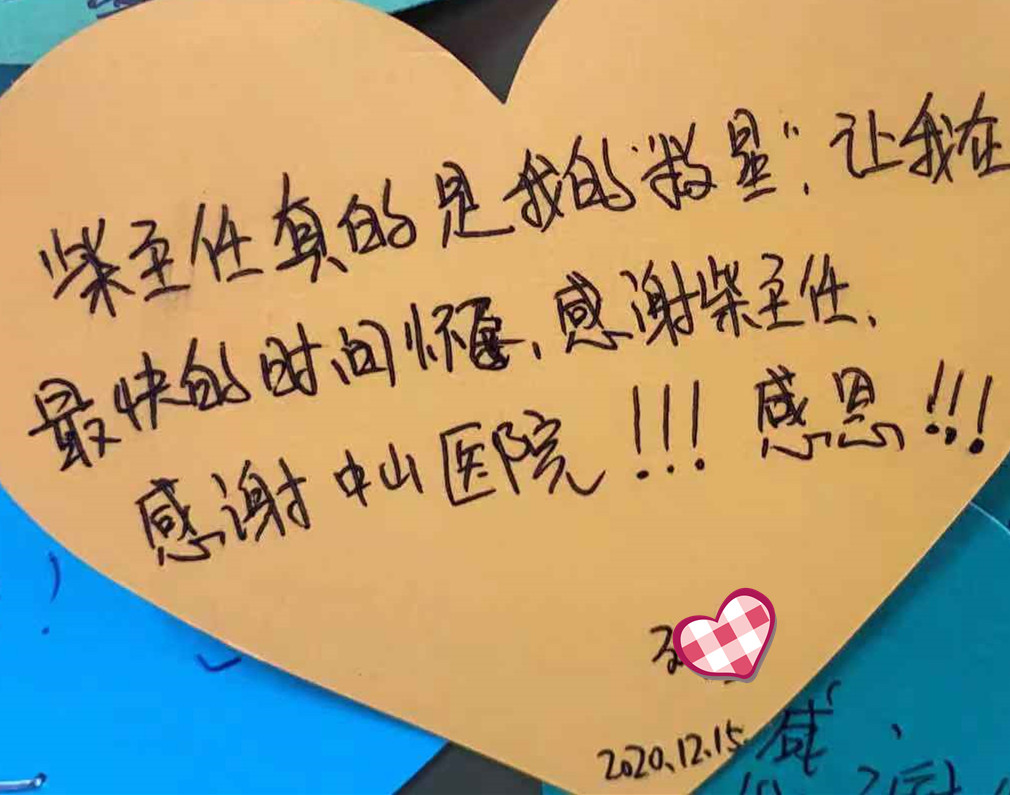 柴主任真的是我的"救星", 让我在
最快的时间怀孕、感谢柴主任、
感谢中山医院!!! 感恩!!!
2020.12.15
感